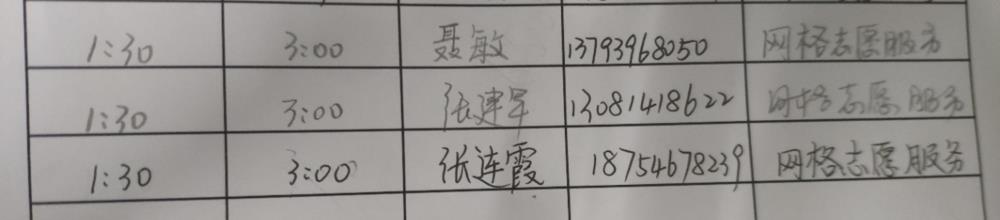 1:30 3:00 聂敏 13793968050 网格志愿服务
1:30 3:00 张建军 13081418622 网格志愿服务
1:30 3:00 张连霞 18754678239 网格志愿服务